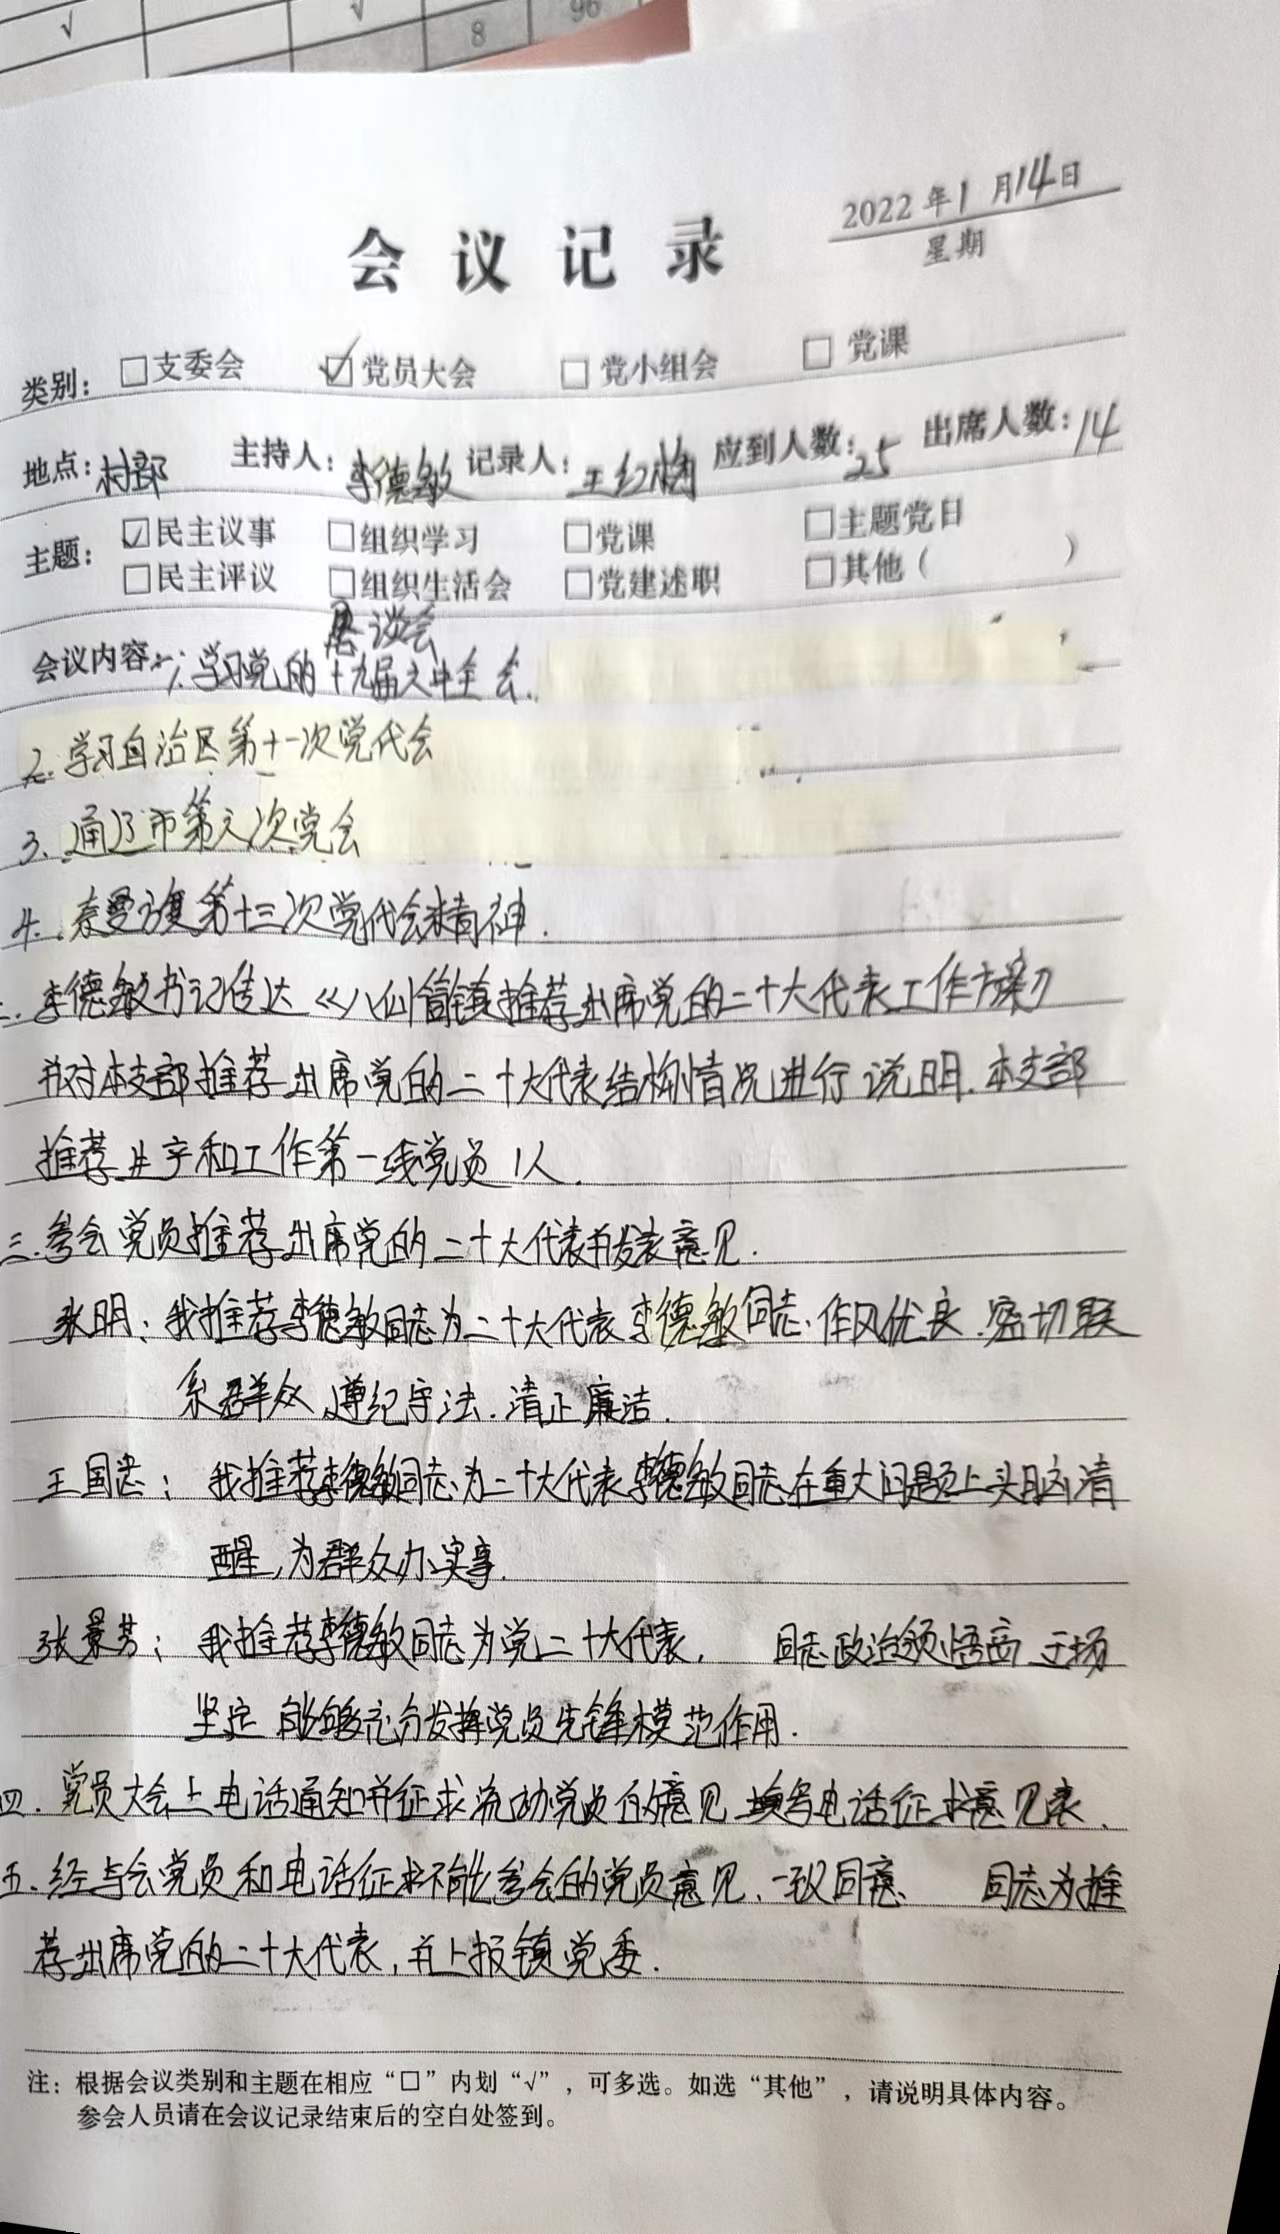 √ √ 8 96
2022 年 1 月 14 日
星期
会 议 记 录
类别： □支委会 ☑党员大会 □党小组会 □党课
地点：村部 主持人：李德敏 记录人：王红梅 应到人数：25 出席人数：14
主题： ☑民主议事 □组织学习 □党课 □主题党日
□民主评议 □组织生活会 □党建述职 □其他（ ）
谈会
会议内容：一、学习党的十九届六中全会.
2. 学习自治区第十一次党代会
3、通辽市第六次党会
4. 奈曼旗第十三次党代会精神.
二. 李德敏书记传达《八仙筒镇推荐出席党的二十大代表工作方案》
并对本支部推荐出席党的二十大代表结构情况进行说明. 本支部
推荐生产和工作第一线党员1人.
三. 参会党员推荐出席党的二十大代表并发表意见.
张明: 我推荐李德敏同志为二十大代表李德敏同志. 作风优良. 密切联
系群众, 遵纪守法. 清正廉洁.
王国志: 我推荐李德敏同志为二十大代表李德敏同志在重大问题上头脑清
醒, 为群众办实事.
张景芳: 我推荐李德敏同志为党二十大代表, 同志政治领悟高 立场
坚定 能够充分发挥党员先锋模范作用.
四. 党员大会上电话通知并征求流动党员的意见 填写电话征求意见表、
五. 经与会党员和电话征求不能参会的党员意见、一致同意 同志为推
荐出席党的二十大代表, 并上报镇党委.
注：根据会议类别和主题在相应“□”内划“√”，可多选。如选“其他”，请说明具体内容。
参会人员请在会议记录结束后的空白处签到。